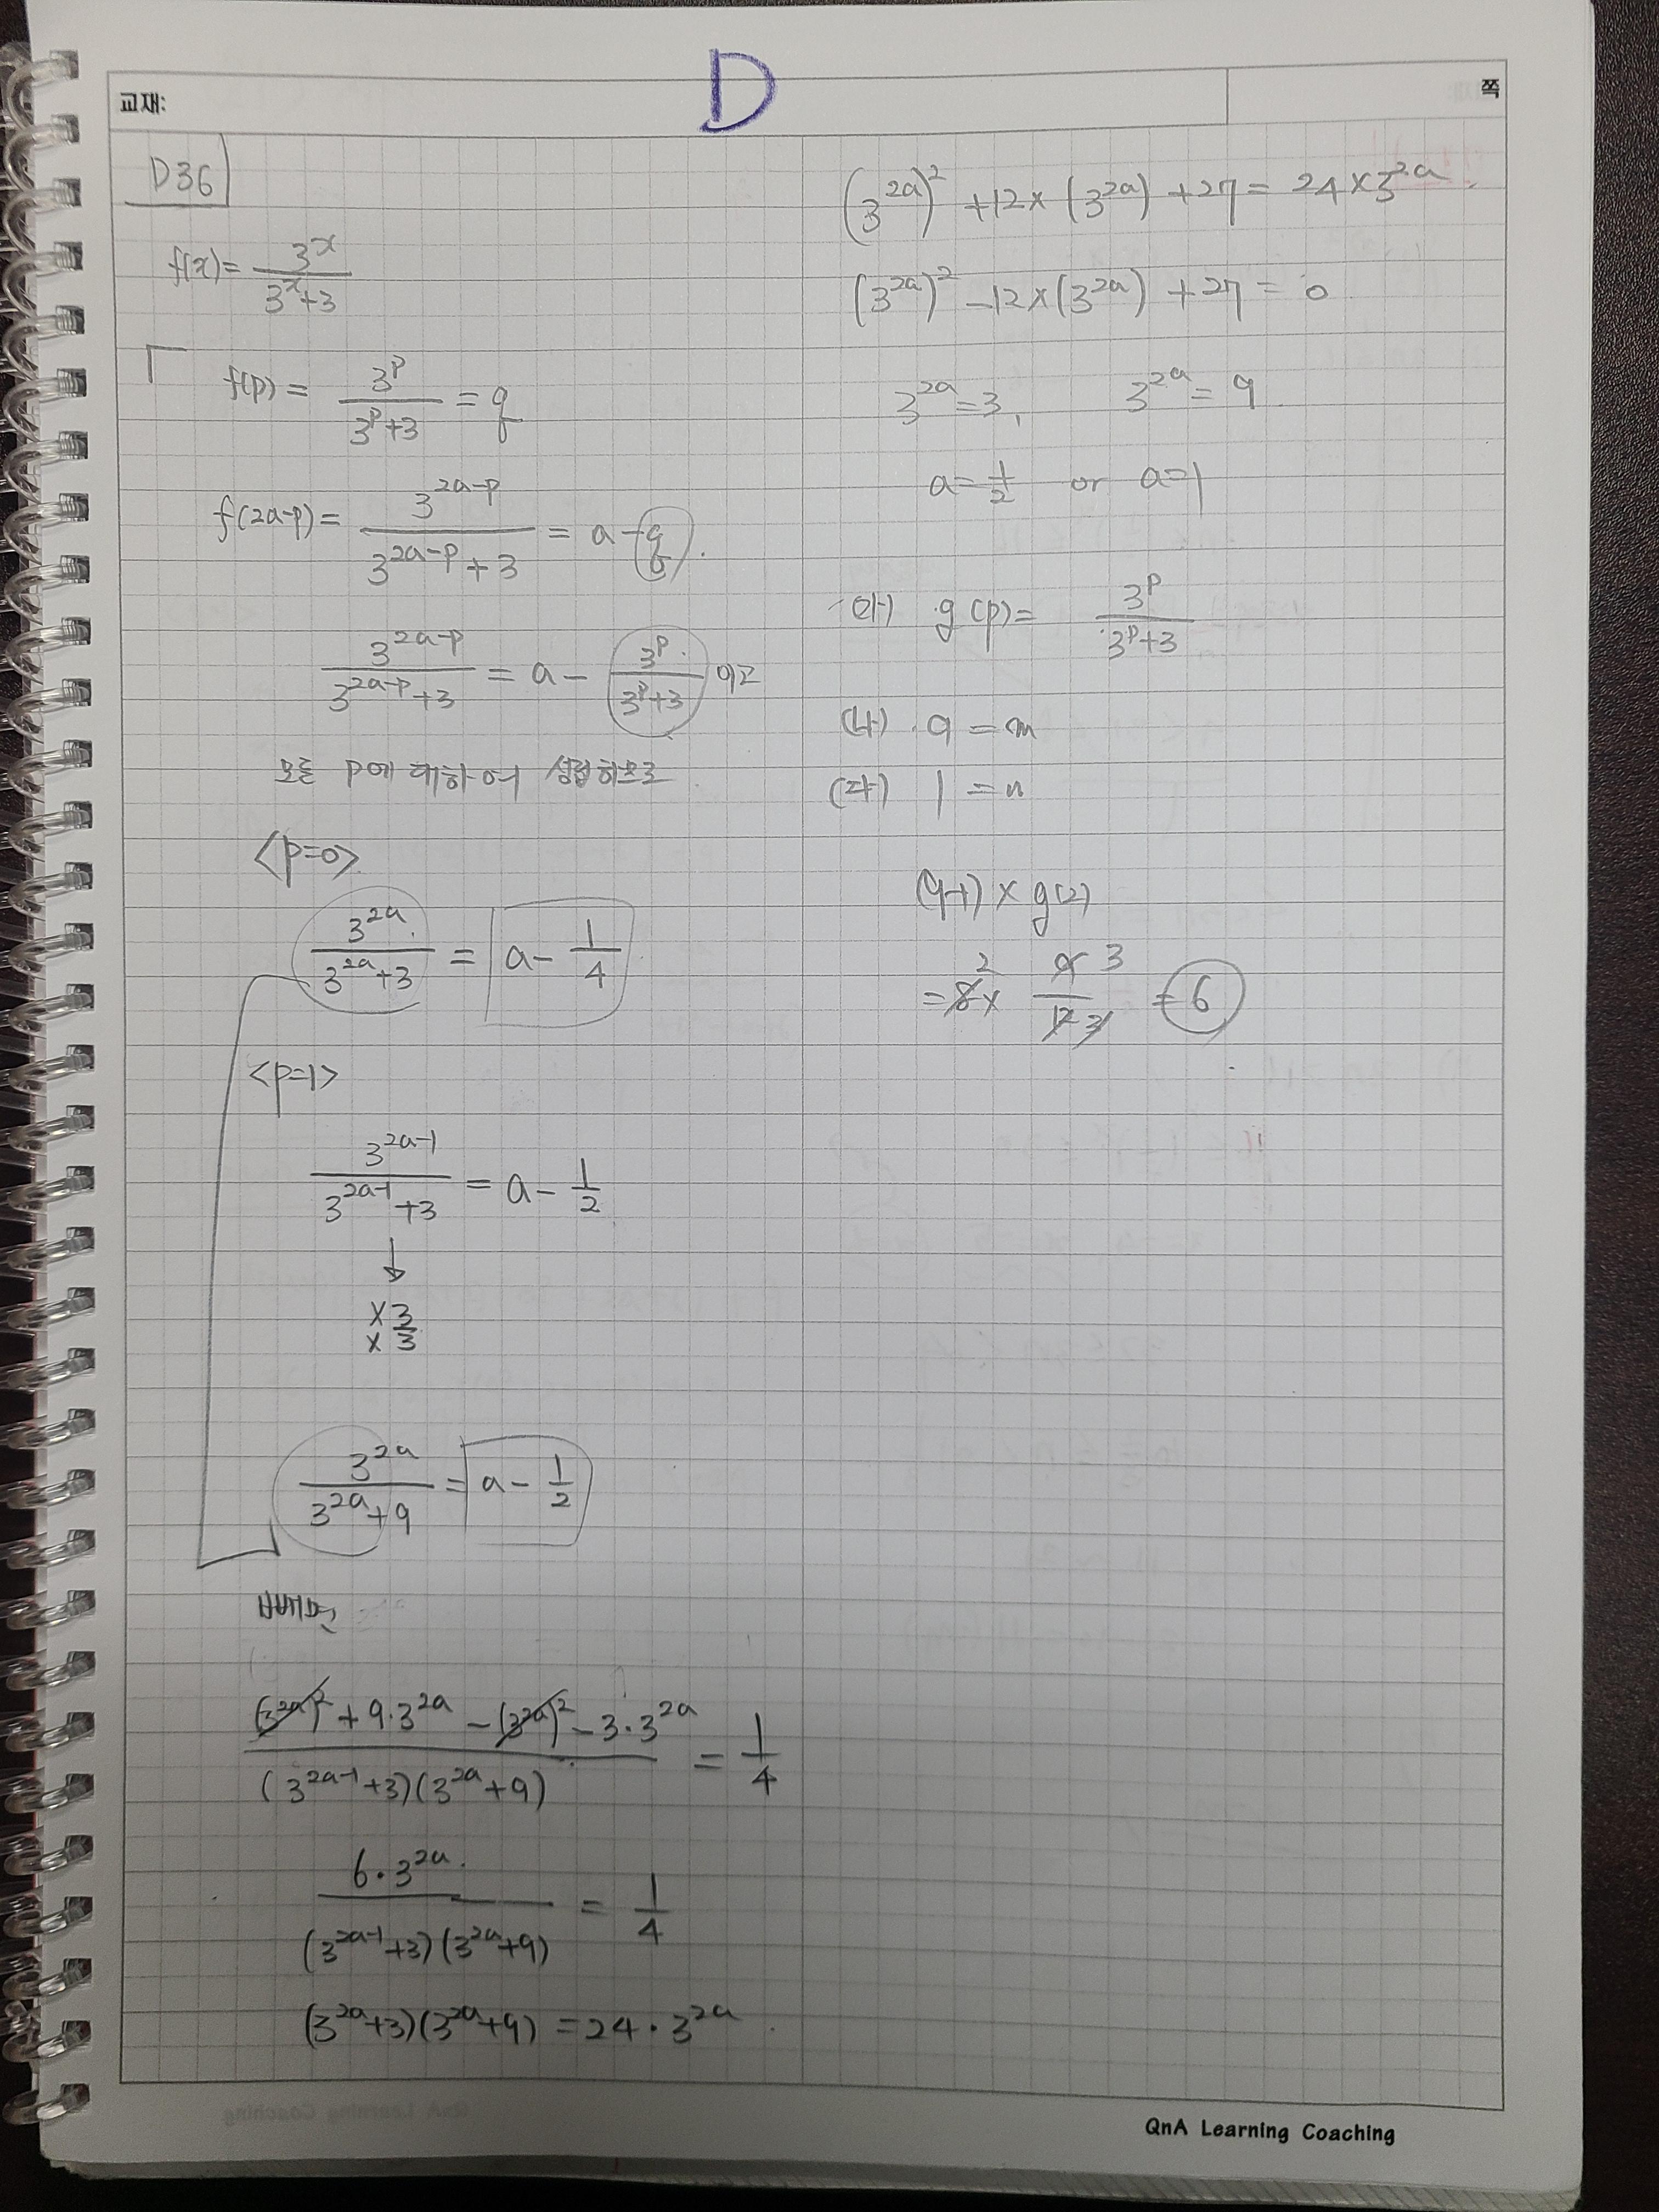 D
교재: 쪽
D36
f(x)= 3^x / (3^x+3)
f(p)= 3^p / (3^p+3) = q
f(2a-p)= 3^(2a-p) / (3^(2a-p)+3) = a-q.
3^(2a-p) / (3^(2a-p)+3) = a - 3^p / (3^p+3) 이고
모든 p에 대하여 성립하므로
<p=0>
3^(2a) / (3^(2a)+3) = a - 1/4
<p=1>
3^(2a-1) / (3^(2a-1)+3) = a - 1/2
↓
×3
×3
3^(2a) / (3^(2a)+9) = a - 1/2
빼면
((3^(2a))^2 + 9·3^(2a) - (3^(2a))^2 - 3·3^(2a)) / ((3^(2a-1)+3)(3^(2a)+9)) = 1/4
6·3^(2a) / ((3^(2a-1)+3)(3^(2a)+9)) = 1/4
(3^(2a)+3)(3^(2a)+9) = 24·3^(2a)
(3^(2a))^2 +12×(3^(2a)) +27 = 24×3^(2a)
(3^(2a))^2 -12×(3^(2a)) +27 = 0
3^(2a)=3, 3^(2a)=9
a=1/2 or a=1
(가) g(p)= 3^p / (3^p+3)
(나) 9 = m
(다) 1 = n
(9-1)×g(2)
=8× 9/12 = 6
QnA Learning Coaching